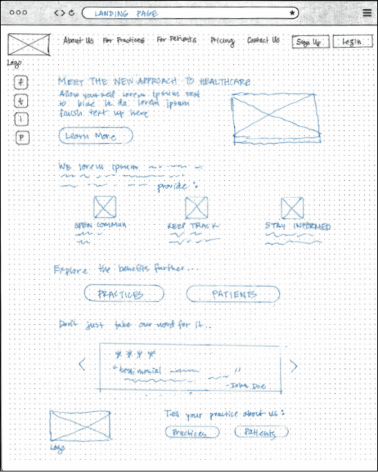 LANDING PAGE
About Us For Practices For Patients Pricing Contact Us Sign Up Login
Logo
f
t
i
P
MEET THE NEW APPROACH TO HEALTHCARE
Allow yourself lorem ipsum
to lorem ipsum
text up here
Learn More
We lorem ipsum
provide:
OPEN COMMUN KEEP TRACK STAY INFORMED
Explore the benefits further...
PRACTICES PATIENTS
Don't just take our word for it..
"testimonial "
- Jane Doe
your practice about us:
Logo
Practices Patients